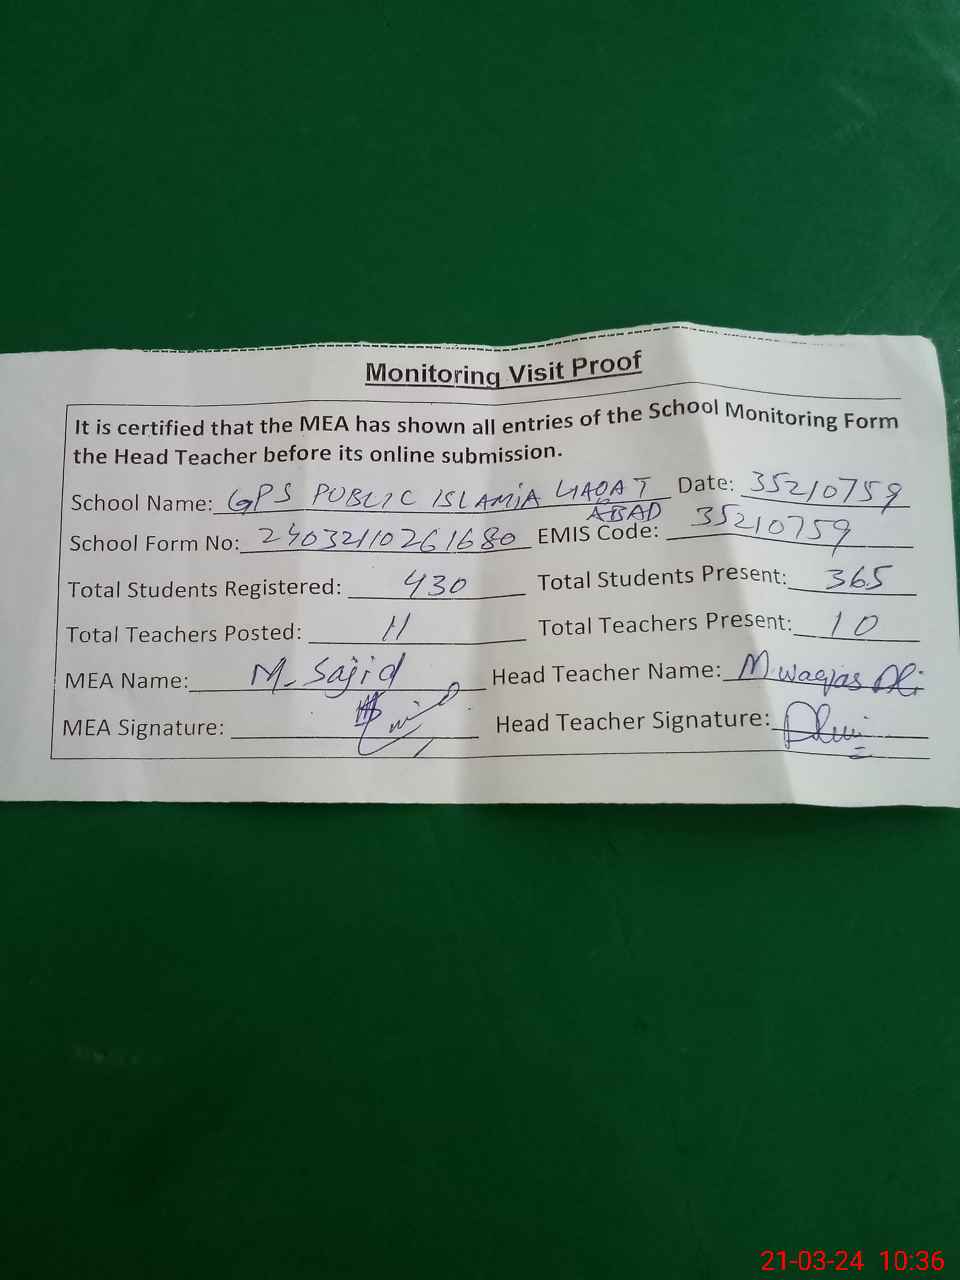 Monitoring Visit Proof
It is certified that the MEA has shown all entries of the School Monitoring Form
the Head Teacher before its online submission.
School Name: GPS PUBLIC ISLAMIA LIAQAT ABAD Date: 35210759
School Form No: 24032110261680 EMIS Code: 35210759
Total Students Registered: 430 Total Students Present: 365
Total Teachers Posted: 11 Total Teachers Present: 10
MEA Name: M. Sajid Head Teacher Name: M. Waqas Ali
MEA Signature: Head Teacher Signature:
21-03-24 10:36